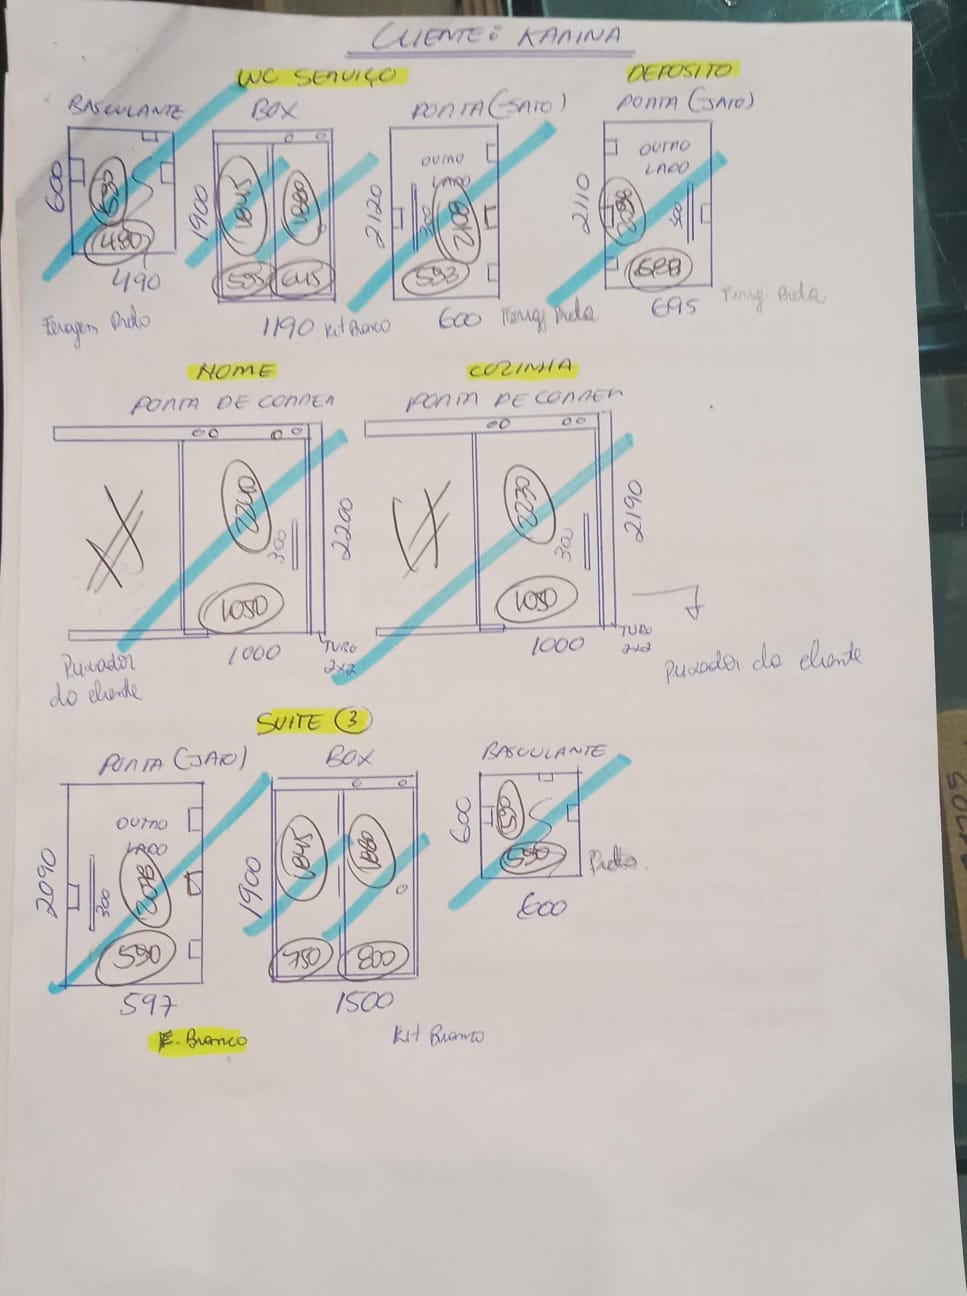 CLIENTE: KARINA
WC SERVIÇO
DEPOSITO
BASCULANTE
BOX
PORTA (JATO)
PORTA (JATO)
OUTRO
LADO
OUTRO
LADO
600
590
480
490
1900
1845
1880
595
615
1190
Kit Branco
2120
300
2108
593
600
Ferrag. Preta
2110
2098
688
695
Ferrag. Preta
Feragem Preto
HOME
COZINHA
PORTA DE CORRER
PORTA DE CORRER
2240
300
2200
1050
1000
TUBO
2x2
Puxador
do cliente
2230
300
2190
1050
1000
TUBO
2x2
Puxador do cliente
SUITE 3
PORTA (JATO)
BOX
BASCULANTE
OUTRO
LADO
2090
300
2078
590
597
F. Branco
1900
1845
1880
750
800
1500
Kit Branco
600
590
590
600